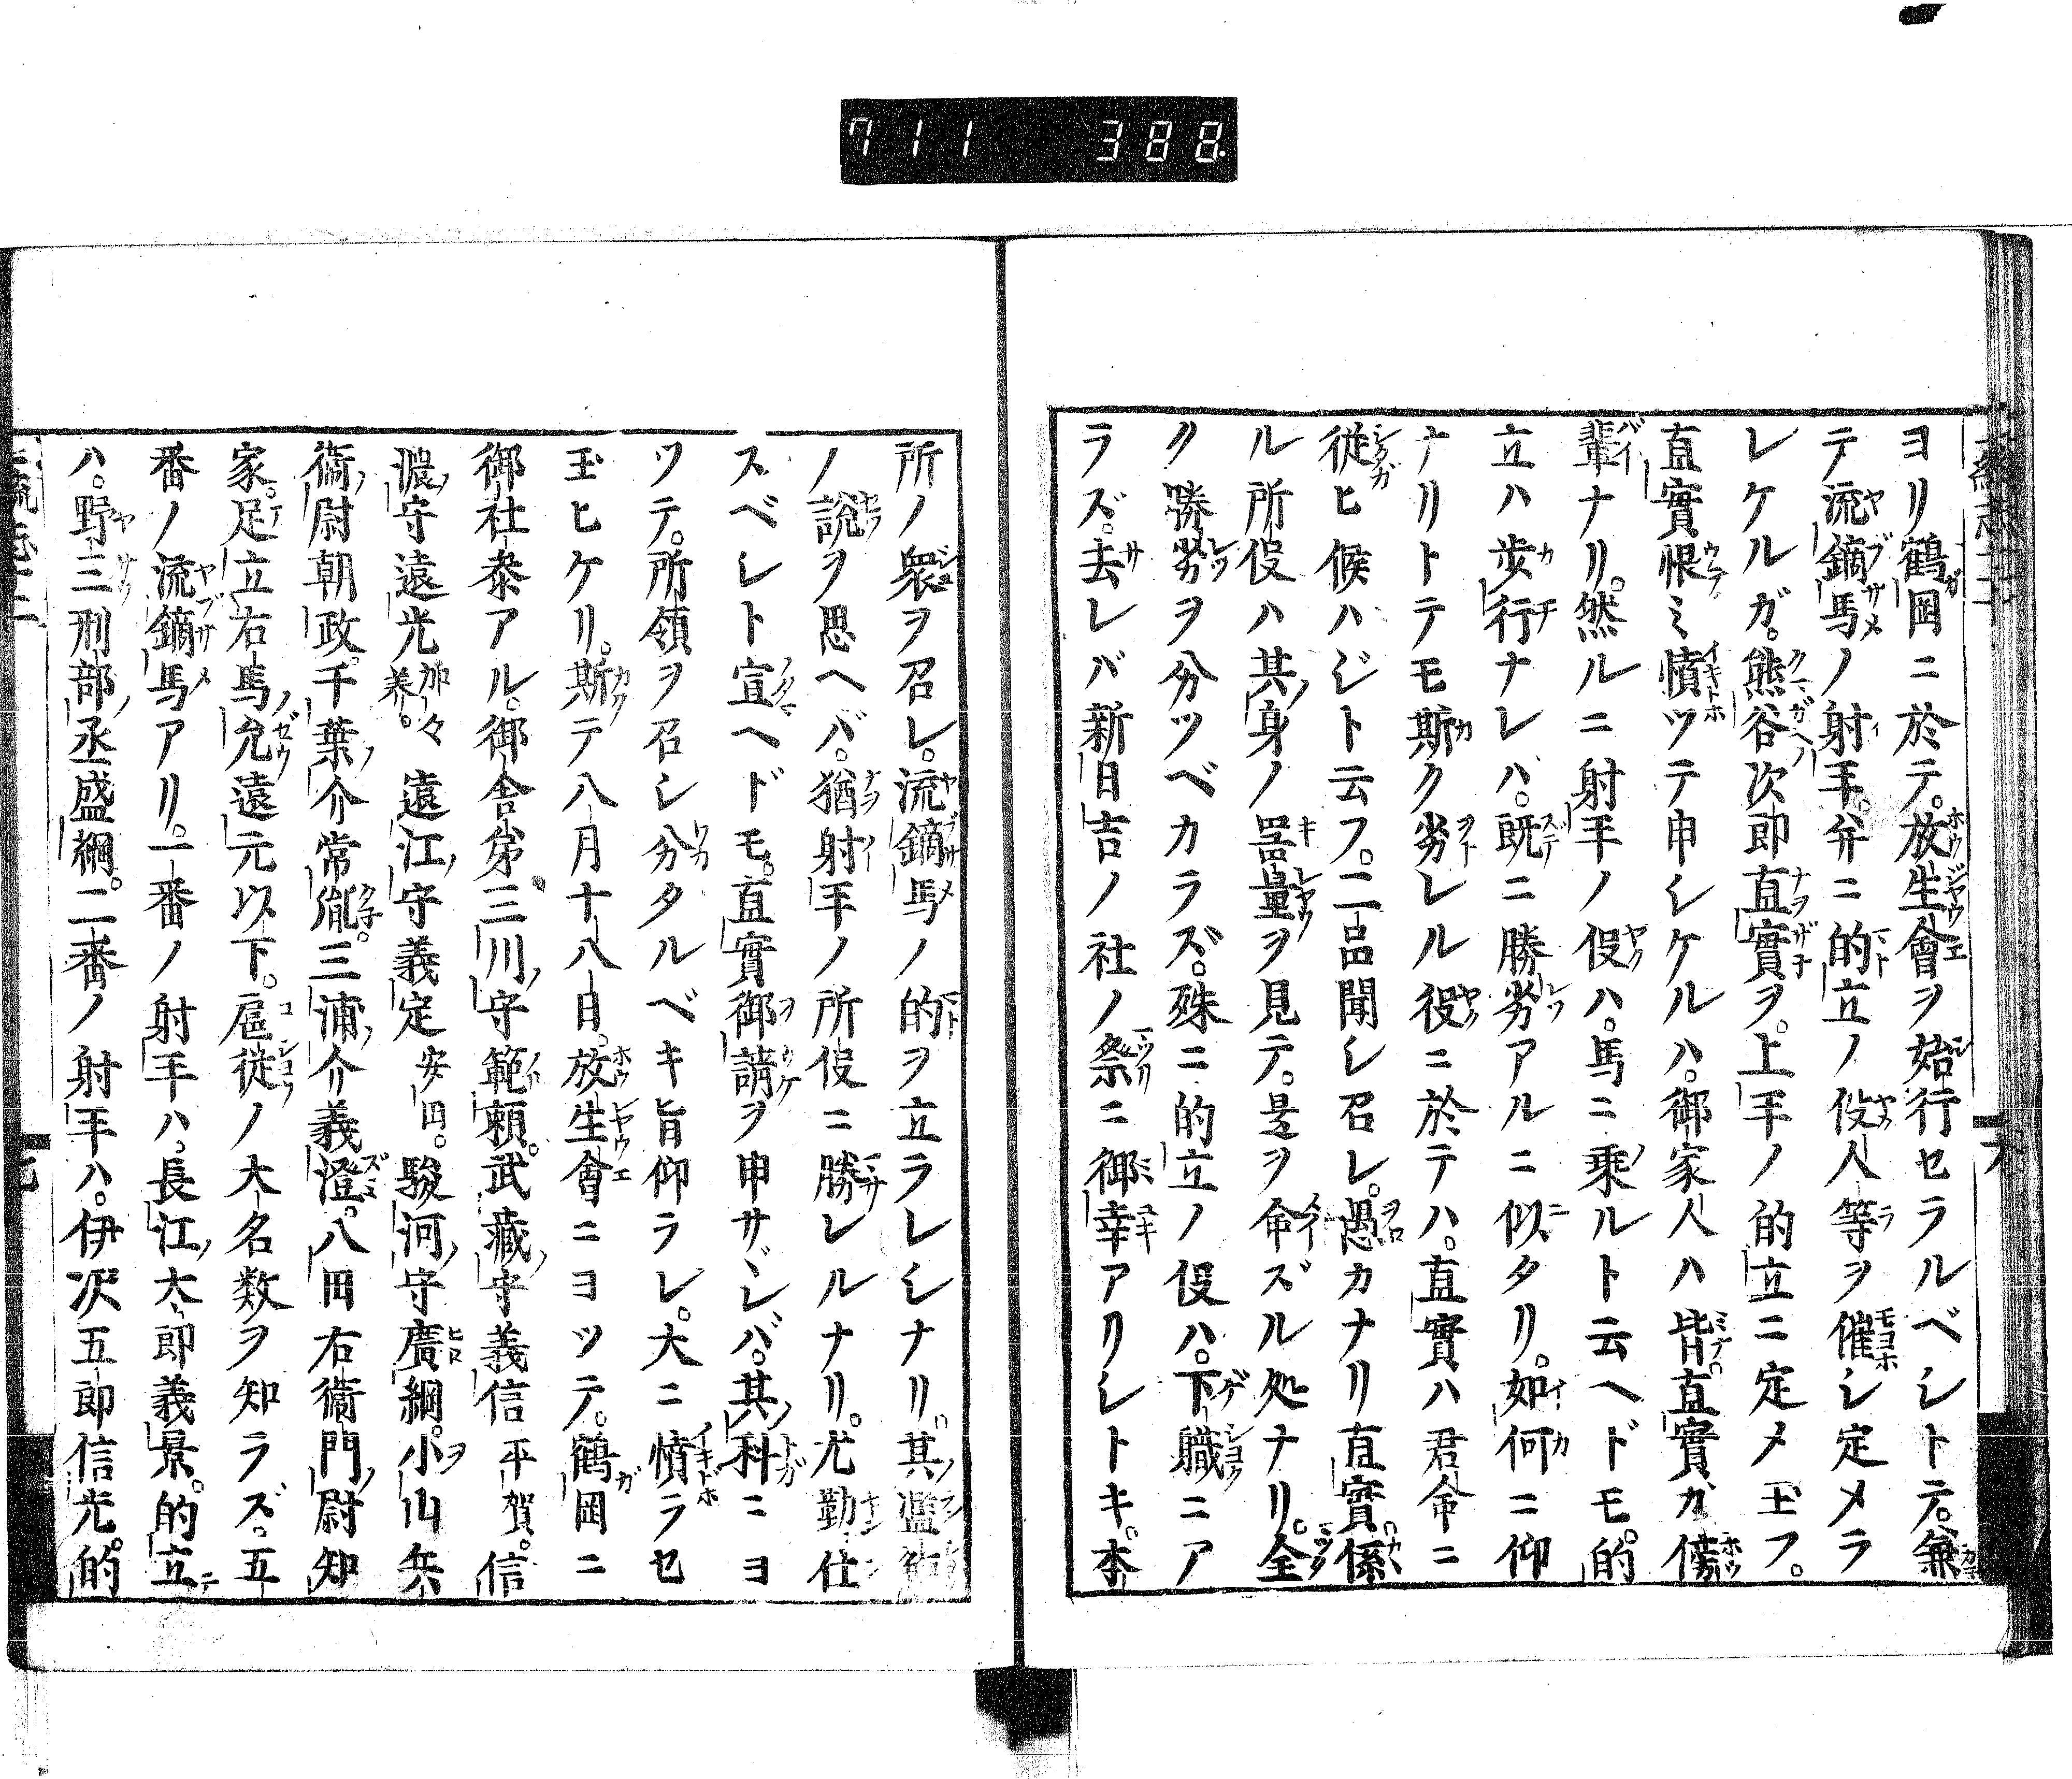 711 388
ヨリ鶴岡ニ於テ。放生會ヲ始行セラルベシトテ。兼
テ流鏑馬ノ射手。并ニ的立ノ役人等ヲ催シ定メラ
レケルガ。熊谷次郎直實ヲ。上手ノ的立ニ定メ玉フ。
直實恨ミ憤ツテ申シケルハ。御家人ハ皆直實ガ傍
輩ナリ。然ルニ射手ノ役ハ。馬ニ乗ルト云ヘドモ。的
立ハ歩行ナレハ。既ニ勝劣アルニ似タリ。如何ニ仰
ナリトテモ斯ク劣レル役ニ於テハ。直實ハ君命ニ
従ヒ候ハジト云フ。二品聞シ召レ。愚カナリ直實。係
ル所役ハ其身ノ器量ヲ見テ。是ヲ命ズル処ナリ。全
ク勝劣ヲ分ツベカラズ。殊ニ的立ノ役ハ。下職ニア
ラズ。去レバ新日吉ノ社ノ祭ニ御幸アリシトキ。本
所ノ衆ヲ召レ。流鏑馬ノ的ヲ立ラレシナリ。其濫觴
ノ説ヲ思ヘバ。猶射手ノ所役ニ勝レルナリ。尤勤仕
スベシト宣ヘドモ。直實御請ヲ申サヾシバ。其科ニヨ
ツテ。所領ヲ召シ分タルベキ旨仰ラレ。大ニ憤ラセ
玉ヒケリ。斯テ八月十八日。放生會ニヨツテ。鶴岡ニ
御社参アル。御舎弟三川守範頼。武蔵守義信平賀。信
濃守遠光加々美。遠江守義定安田。駿河守廣綱。小山兵
衞尉朝政。千葉介常胤。三浦介義澄。八田右衞門尉知
家。足立右馬允遠元以下。扈從ノ大名数ヲ知ラズ。五
番ノ流鏑馬アリ。一番ノ射手ハ。長江大郎義景。的立
ハ。野三刑部丞盛綱。二番ノ射手ハ。伊沢五郎信光。的